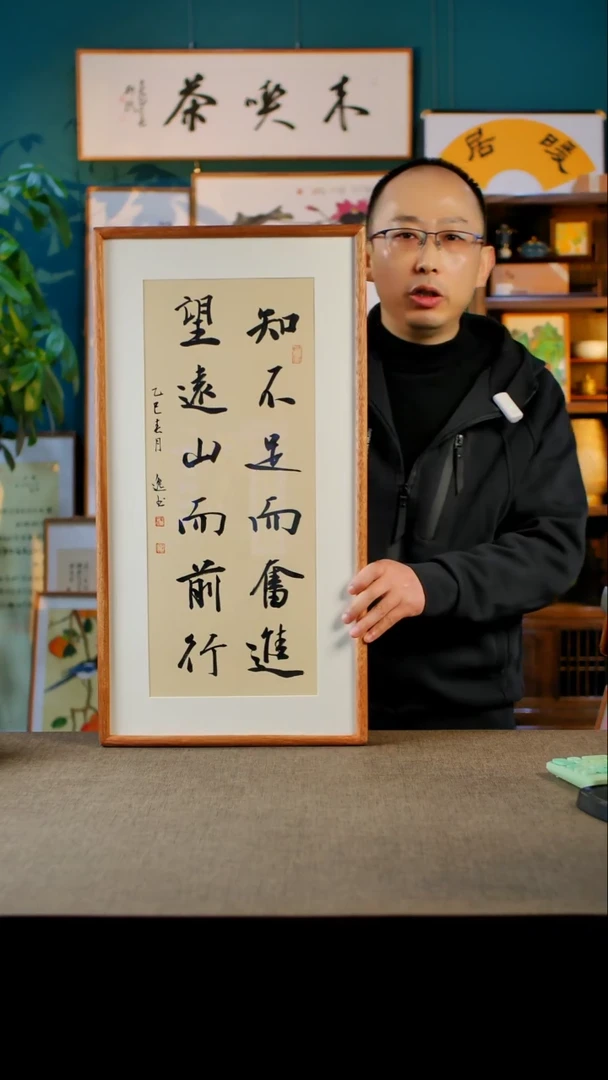 茶喫来
暖居
知不足而奮進
望遠山而前行
乙巳春月 逸书